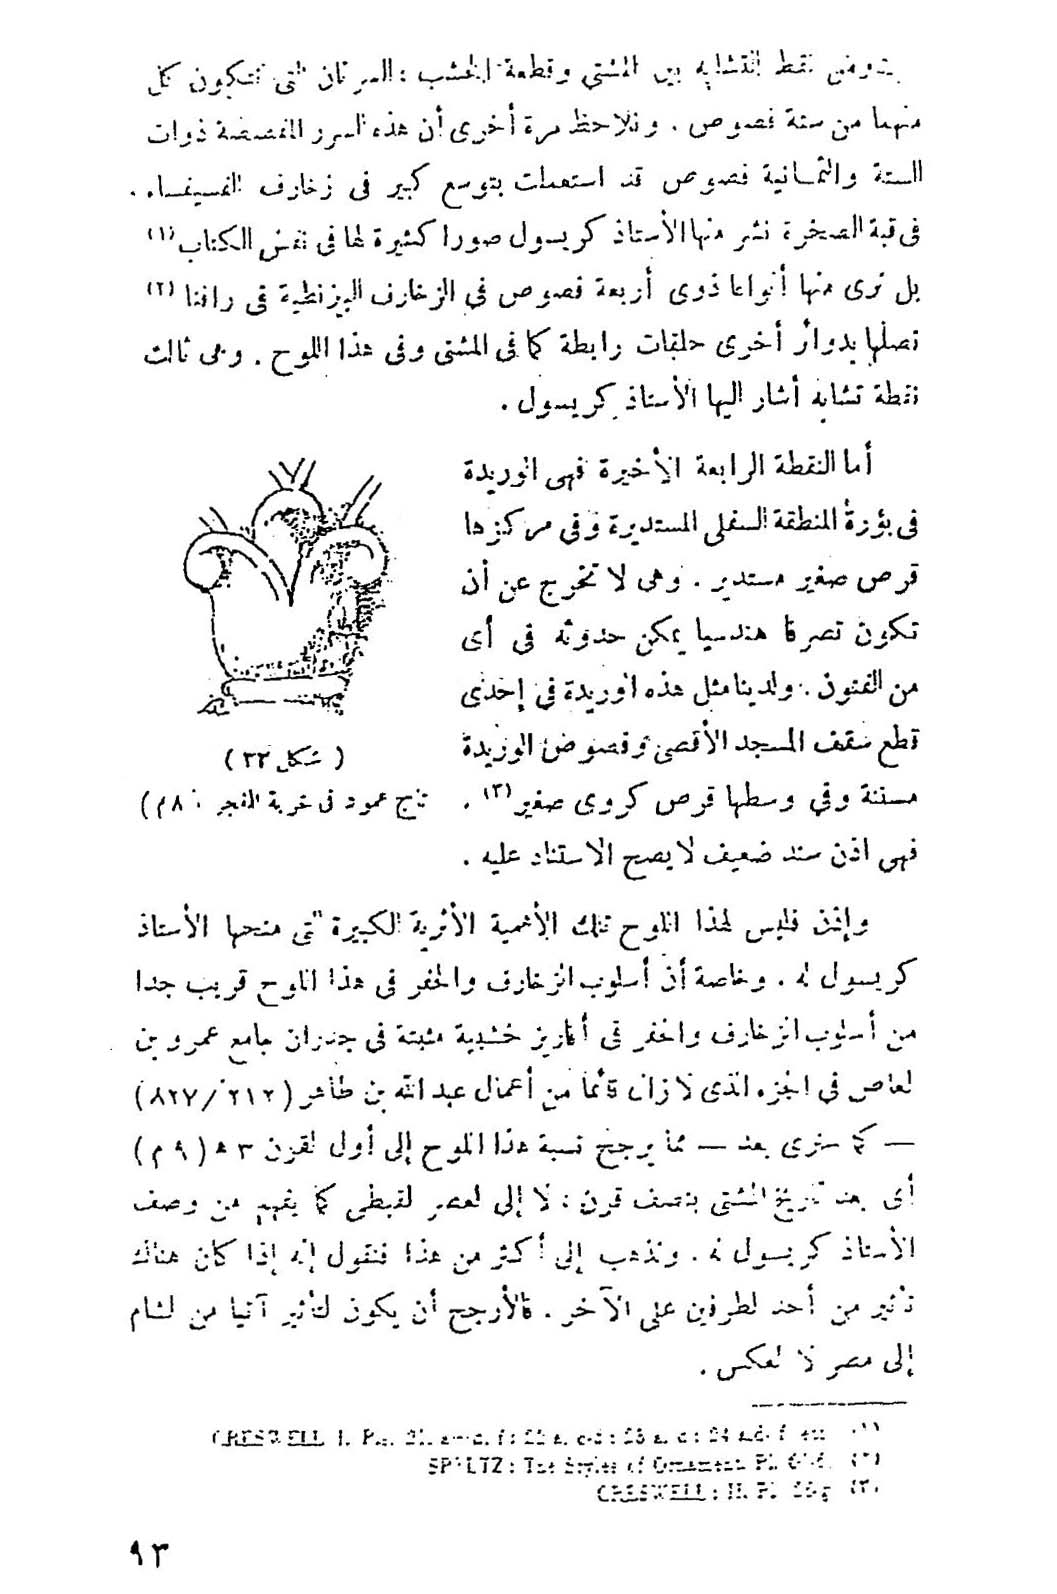 ومن نقط التشابه بين المشتى وقطعة الخشب : السرتان التى تتكون كل
منهما من ستة فصوص . ونلاحظ مرة أخرى أن هذه السرر المفصصة ذوات
الستة والثمانية فصوص قد استعملت بتوسع كبير فى زخارف الفسيفساء .
فى قبة الصخرة نشر منها الأستاذ كريسول صورا كثيرة لها فى نفس الكتاب (١)
بل نرى منها أنواعا ذوى أربعة فصوص في الزخارف البيزنطية فى رافنا (٢)
تصلها بدوائر أخرى حلقات رابطة كما فى المشتى وفى هذا اللوح . وهى ثالث
نقطة تشابه أشار اليها الأستاذ كريسول .
أما النقطة الرابعة الأخيرة فهى الوريدة
فى بؤرة المنطقة السفلى المستديرة وفى مركزها
قرص صغير مستدير . وهى لا تخرج عن أن
تكون تصرفا هندسيا يمكن حدوثه فى أى
من الفنون . ولدينا مثل هذه الوريدة في إحدى
قطع سقف المسجد الأقصى وفصوص الوريدة
مسننة وفى وسطها قرص كروى صغير (٣) .
فهى اذن سند ضعيف لا يصح الاستناد عليه .
( شكل ٣٢ )
تاج عمود فى خربة المفجر ٨ م )
وإذن فليس لهذا اللوح تلك الأهمية الأثرية الكبيرة التى منحها الأستاذ
كريسول له . وخاصة أن أسلوب الزخارف والحفر فى هذا اللوح قريب جدا
من أسلوب الزخارف والحفر فى أفاريز خشبية مثبتة فى جدران جامع عمرو بن
لعاص فى الجزء الذى لا زال قائما من أعمال عبد الله بن طاهر ( ٢١٢ / ٨٢٧ )
— كما سنرى بعد — مما يرجح نسبة هذا اللوح إلى أول القرن ٣ ه ( ٩ م )
أى بعد تاريخ المشتى بنصف قرن ، لا إلى العصر القبطى كما يفهم من وصف
الأستاذ كريسول له . ونذهب إلى أكثر من هذا فنقول إنه إذا كان هناك
تأثير من أحد الطرفين على الآخر . فالأرجح أن يكون التأثير آتيا من الشام
إلى مصر لا العكس .
(١) CRESWELL I.
(٢) SPELTZ : The Styles of Ornament, Pl.
(٣) CRESWELL : II. Pl.
٩٣